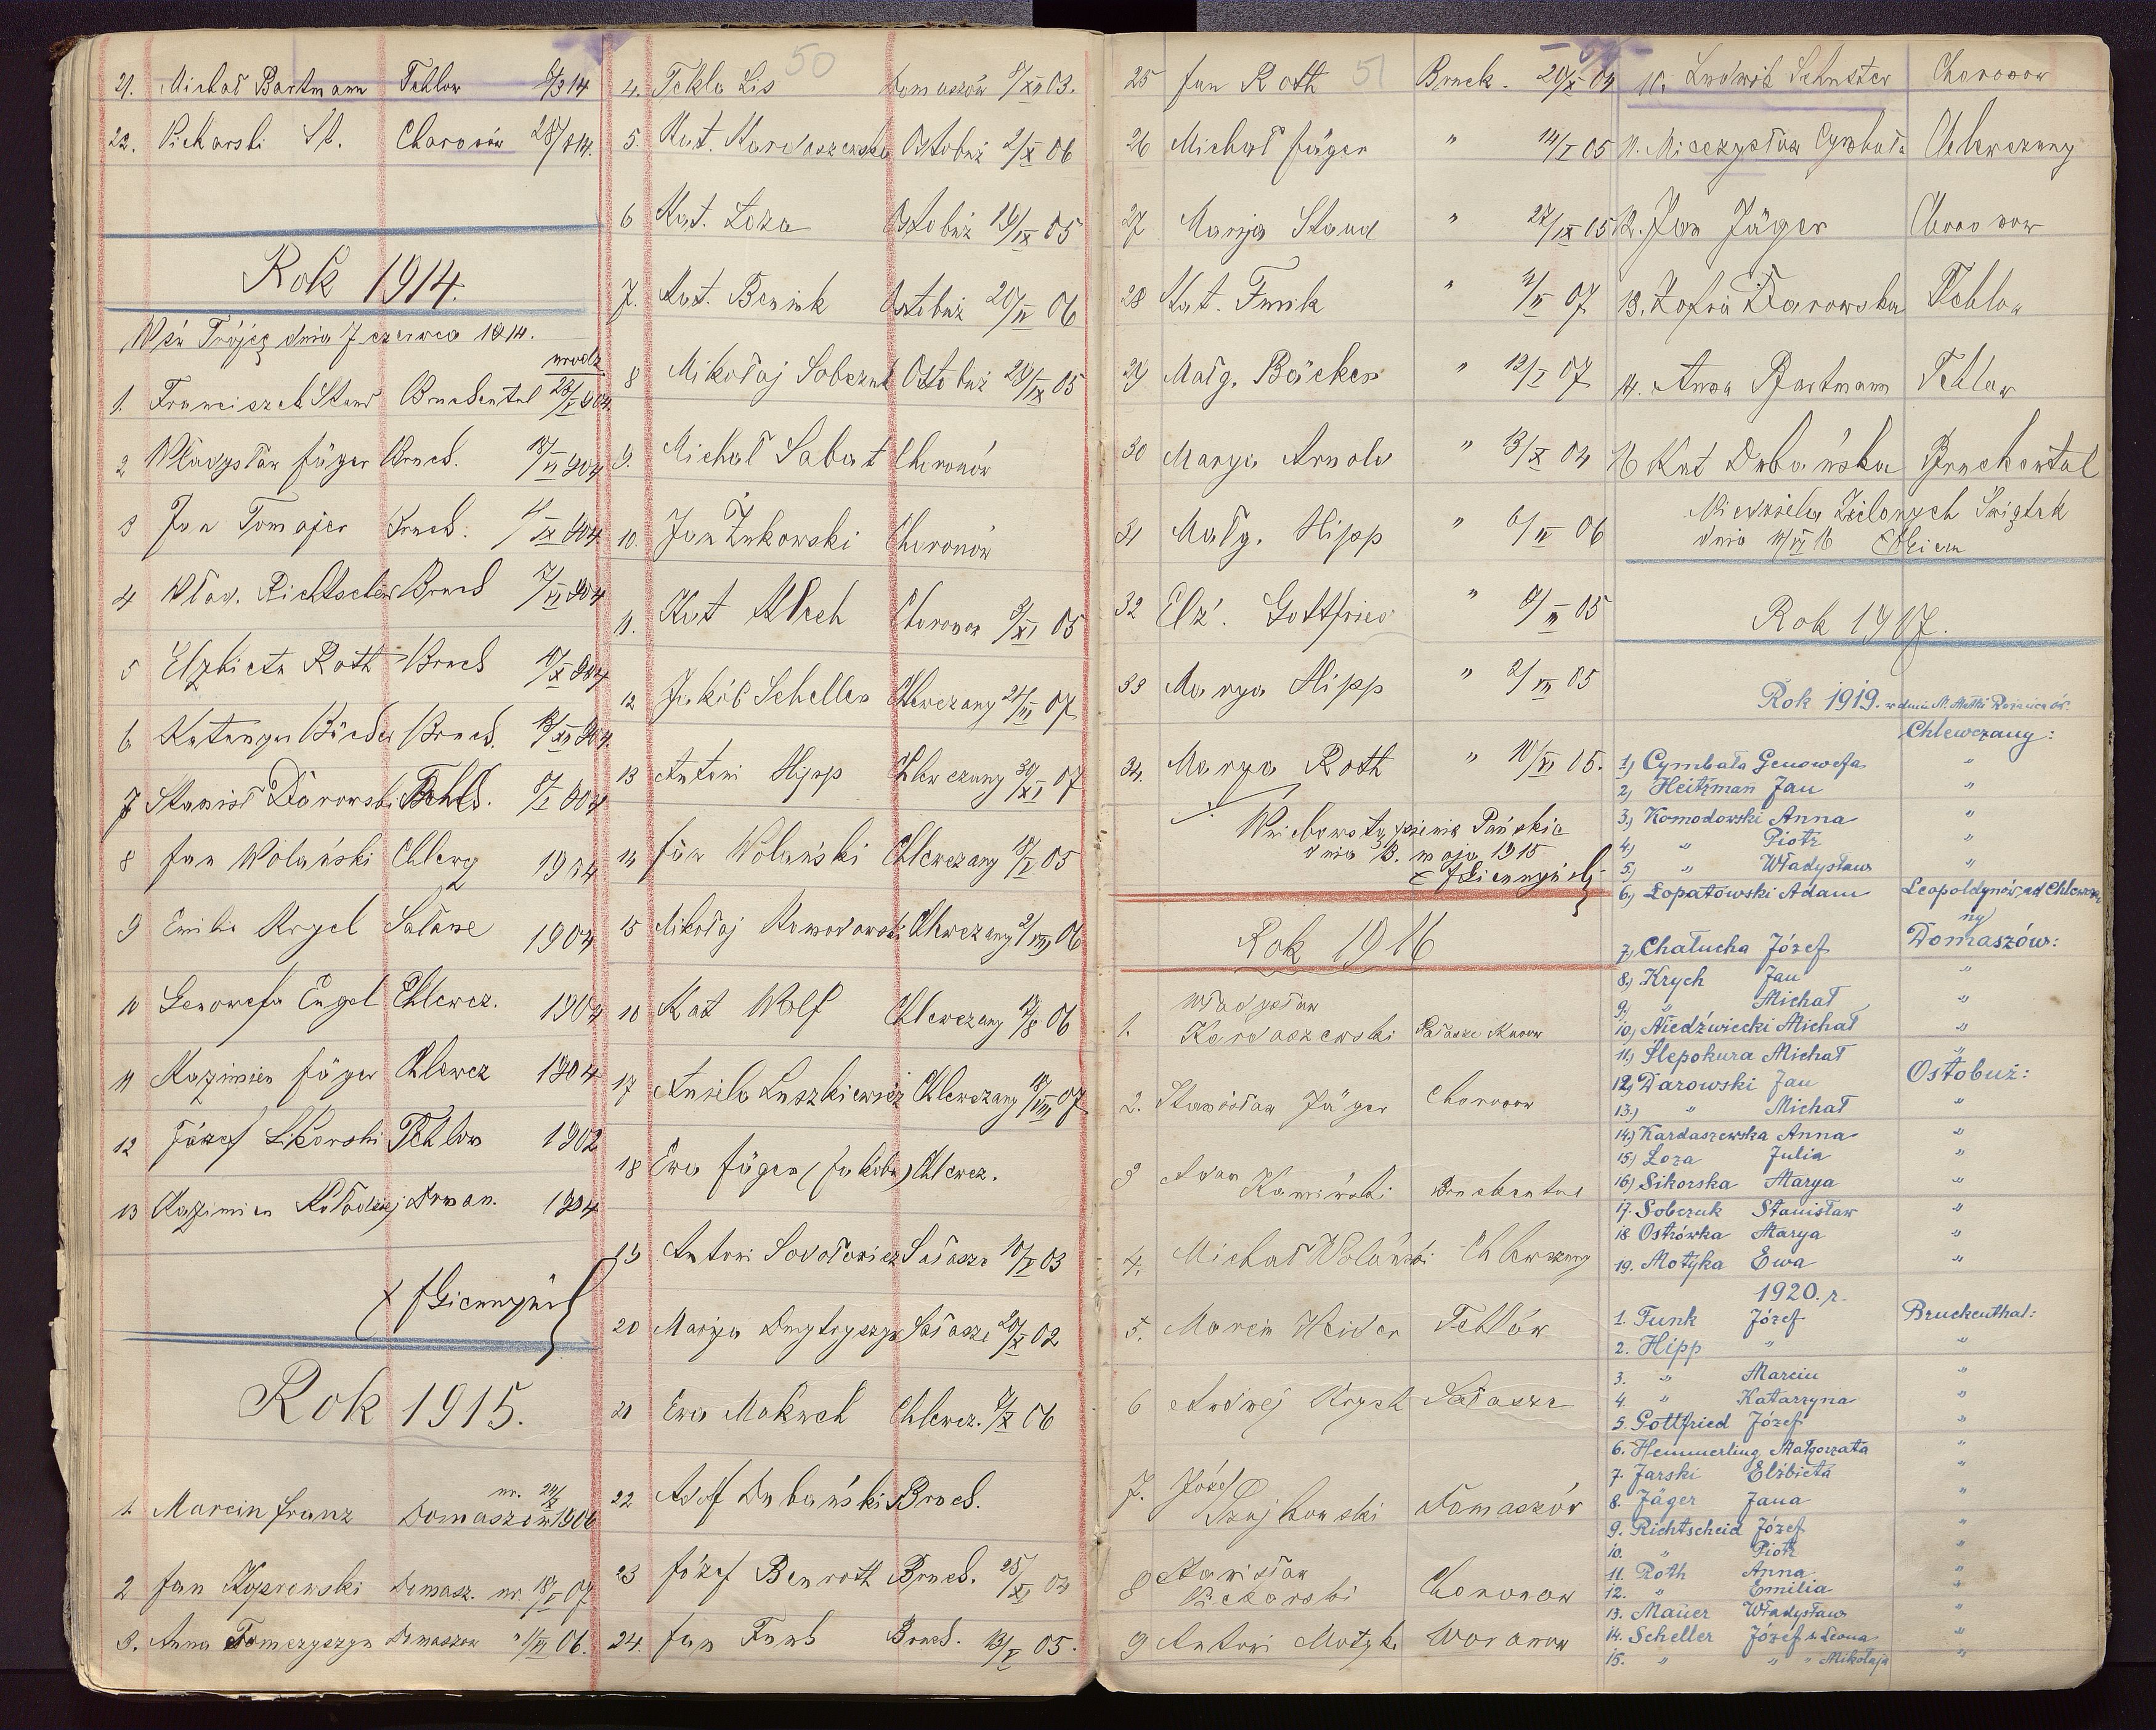 50
21. Michał Bartmann Tehlow 6/3 14
22. Piekarski St. Choronów 28/8 14.
Rok 1914.
W św Trójcę dnia 7 czerwca 1914.
urodz
1. Franciszek Staud Bruckental 28/I 904
2 Władysław Jäger Bruck. 18/VI 904
3 Jan Tomajer Bruck. IX 904
4 Wład. Richtscheid Bruck 7/VI 904
5 Elżbieta Roth Bruck 10/X 904
6 Katarzyna Bäcker Bruck. 18/XII 904.
7 Stanisł Darowski Tehl. 8/I 904
8 Jan Wolański Chlewcz 1904
9 Emilia Krych Sałasze 1904
10 Genowefa Engel Chlewcz. 1904
11 Kazimierz Jäger Chlewcz 1904
12 Józef Sikorski Tehlow 1902
13 Kazimierz Kołodziej Doman. 1904
Rok 1915.
ur. 24/X
1. Marcin Franz Domaszów 1906
2 Jan Koprowski Domasz. ur. 18/I 07.
3. Anna Tomczyszyn Domaszow " 1/VII 06.
4. Tekla Lis Domaszów 9/XI 03.
5. Kat. Kardaszewska Ostobuż 2/X 06
6 Kat. Loza Ostobuż 14/IX 05
7. Kat. Beniuk Ostobuż 20/II 06
8 Mikołaj Sobczuk Ostobuż 24/IX 05
9. Michał Sabat Choronów
10. Jan Żukowski Choronów
11. Kat Klech Choronow 9/XI 05
12 Jakób Scheller Chlewczany 24/III 07
13 Antoni Hipp Chlewczany 30/XI 07
14 Jan Wolański Chlewczany 19/I 05
15 Mikołaj Komodowski Chlewczany 2/VIII 06
16 Kat Wolf Chlewczany 12/8 06
17 Aniela Luszkiewicz Chlewczany 18/VIII 07
18 Ewa Jäger (Jakóba) Chlewcz.
19 Antoni Sokołowicz Sałasze 10/X 03
20 Marya Dmytryszyn Sałasze 20/X 02
21 Ewa Makuch Chlewcz. 9/X 06
22 Adolf Dubański Bruck.
23 Józef Benroth Bruck. 25/XI 04
24. Jan Funk Bruck. 13/V 05.
51
25 Jan Roth Bruck. 20/X 04
26 Michał Jäger " 14/I 05
27 Marya Staud " 27/IX 05
28 Kat. Funk " 4/II 07
29 Małg. Bäcker " 12/I 07
30 Marya Arnold " 13/X 04
31 Małg. Hipp " 6/IV 06
32 Elż. Gottfried " 9/III 05
33 Marya Hipp " 2/VII 05
34. Marya Roth " 10/VI 05.
Wniebowstąpienie Pańskie
dnia 13. maja 1915
Rok 1916
Władysław
1. Kardaszewski Sałasze
2. Stanisław Jäger Choronow
3 Adam Kamiński Bruckental
4. Michał Wolański Chlewczany
5. Marcin Heider Tehlów
6 Andrzej Krych Sałasze
7. Józef
Szajkowski Domaszów
8 Stanisław
Piekarski Choronow
9 Antoni Motyka Woronow
10. Ludwik Schuster Choronow
11. Mieczysław Cymbała Chlewczany
12. Jan Jäger Choronow
13. Zofia Darowska Tehlow
14. Anna Bartmann Tehlow
16 Kat Dubańska Bruckental
Niedziela Zielonych Świątek
dnia 11/VI 16
Rok 1917.
Rok 1919. w dniu N. Matki Różańcow.
Chlewczany:
1.) Cymbała Genowefa "
2.) Heitzman Jan "
3.) Komodowski Anna "
4.) " Piotr "
5.) " Władysław "
6.) Łopatowski Adam Leopoldynów ad Chlewcza
ny
7.) Chałucha Józef Domaszów:
8.) Krych Jan "
9.) " Michał "
10.) Niedźwiecki Michał "
11.) Ślepokura Michał "
12.) Darowski Jan Ostobuż:
13.) " Michał "
14.) Kardaszewska Anna "
15.) Loza Julia "
16.) Sikorska Marya "
17. Sobczuk Stanisław "
18 Ostrówka Marya "
19. Motyka Ewa "
1920. r.
1. Funk Józef Bruckenthal:
2. Hipp " "
3. " Marcin "
4. " Katarzyna "
5. Gottfried Józef "
6. Hemmerling Małgorzata "
7. Jarski Elżbieta "
8. Jäger Jana "
9. Richtscheid Józef "
10. " Piotr "
11. Roth Anna "
12. " Emilia "
13. Mauer Władysław "
14. Scheller Józef s. Leona "
15. " " " Mikołaja "